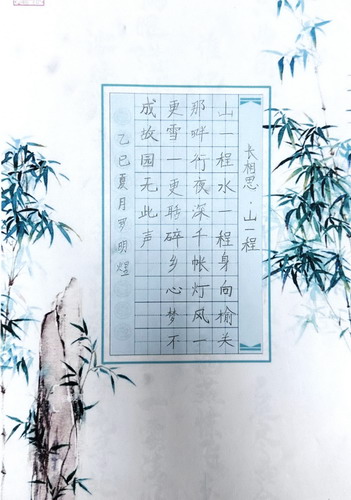 长相思·山一程
山一程水一程身向榆关
那畔行夜深千帐灯风一
更雪一更聒碎乡心梦不
成故园无此声
乙巳夏月罗明煜